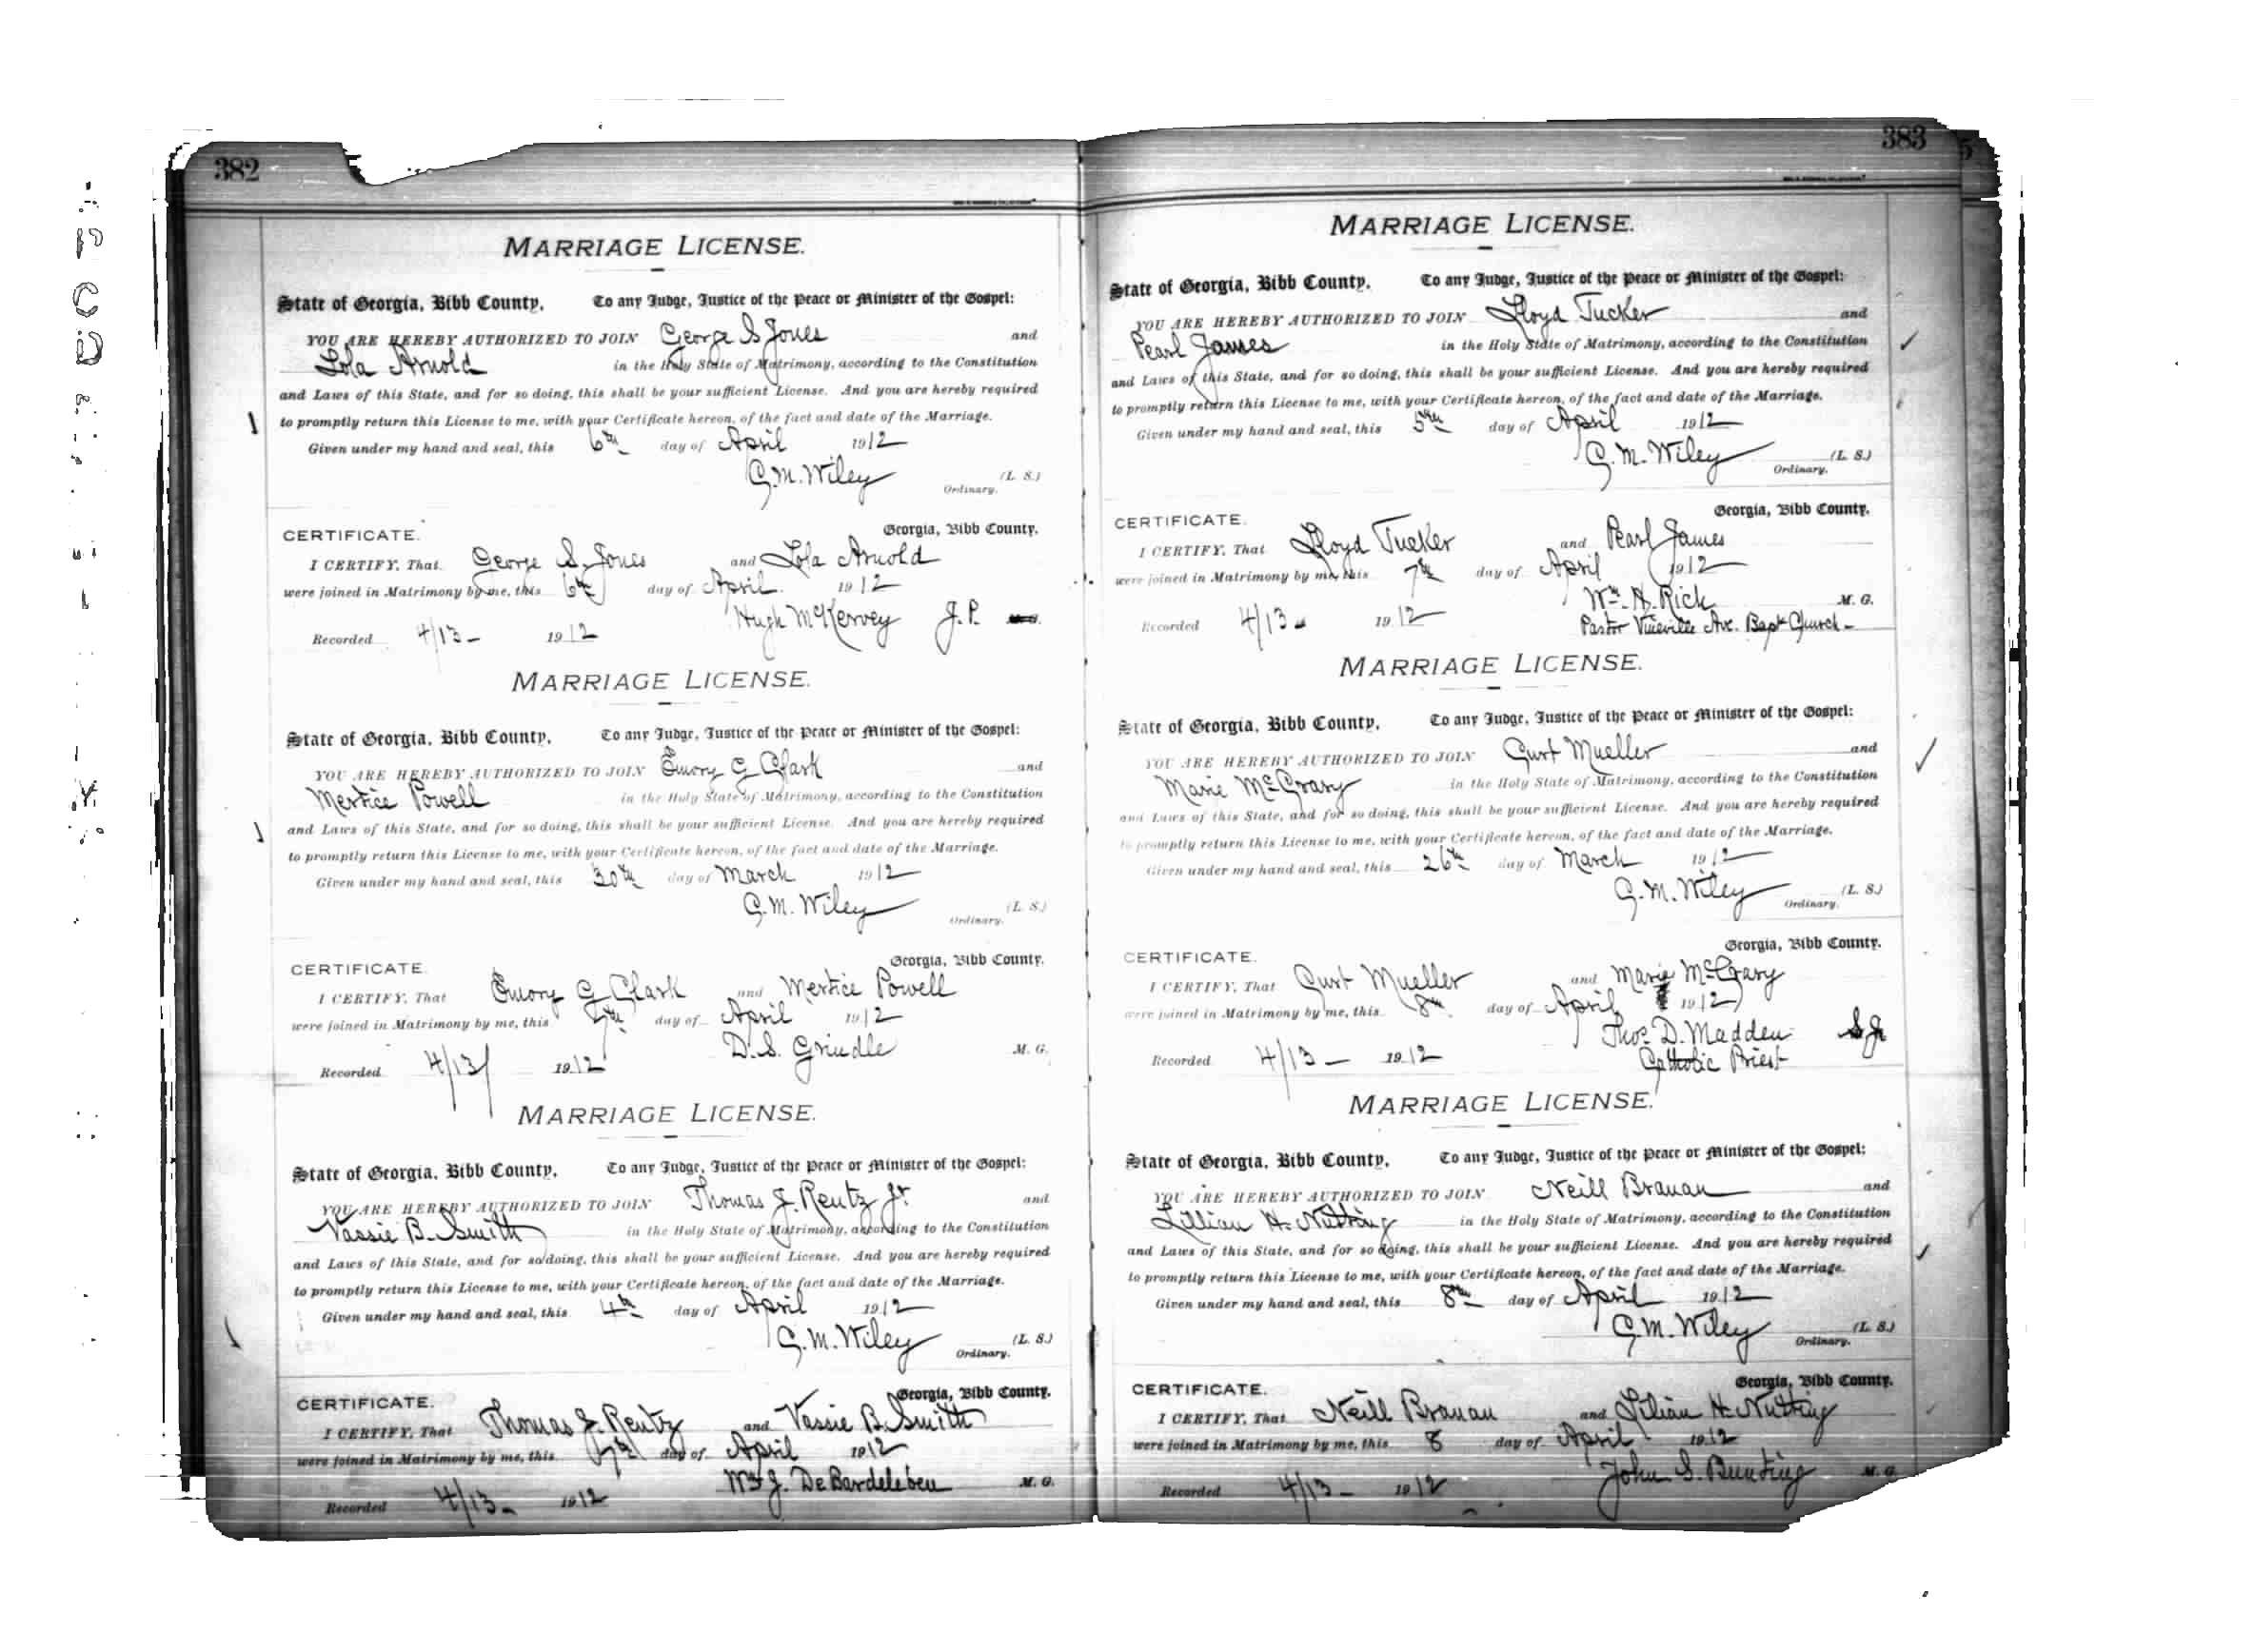 382
MARRIAGE LICENSE.
State of Georgia, Bibb County, To any Judge, Justice of the Peace or Minister of the Gospel:
YOU ARE HEREBY AUTHORIZED TO JOIN George S Jones and
Lola Arnold in the Holy State of Matrimony, according to the Constitution
and Laws of this State, and for so doing, this shall be your sufficient License. And you are hereby required
to promptly return this License to me, with your Certificate hereon, of the fact and date of the Marriage.
Given under my hand and seal, this 6th day of April 1912
G.M. Wiley (L. S.)
Ordinary.
CERTIFICATE. Georgia, Bibb County.
I CERTIFY, That George S. Jones and Lola Arnold
were joined in Matrimony by me, this 6th day of April 1912
Hugh McKervey J.P.
Recorded 4/13- 1912
MARRIAGE LICENSE.
State of Georgia, Bibb County, To any Judge, Justice of the Peace or Minister of the Gospel:
YOU ARE HEREBY AUTHORIZED TO JOIN Emory G Clark and
Mertice Powell in the Holy State of Matrimony, according to the Constitution
and Laws of this State, and for so doing, this shall be your sufficient License. And you are hereby required
to promptly return this License to me, with your Certificate hereon, of the fact and date of the Marriage.
Given under my hand and seal, this 30th day of March 1912
G.M. Wiley (L. S.)
Ordinary.
CERTIFICATE. Georgia, Bibb County.
I CERTIFY, That Emory G Clark and Mertice Powell
were joined in Matrimony by me, this 7th day of April 1912
D.S. Grindle M. G.
Recorded 4/13/ 1912
MARRIAGE LICENSE.
State of Georgia, Bibb County, To any Judge, Justice of the Peace or Minister of the Gospel:
YOU ARE HEREBY AUTHORIZED TO JOIN Thomas J. Rentz Jr. and
Vassie B. Smith in the Holy State of Matrimony, according to the Constitution
and Laws of this State, and for so doing, this shall be your sufficient License. And you are hereby required
to promptly return this License to me, with your Certificate hereon, of the fact and date of the Marriage.
Given under my hand and seal, this 4th day of April 1912
G.M. Wiley (L. S.)
Ordinary.
CERTIFICATE. Georgia, Bibb County.
I CERTIFY, That Thomas J. Rentz and Vassie B. Smith
were joined in Matrimony by me, this 7th day of April 1912
Wm J. DeBardeleben M. G.
Recorded 4/13- 1912
383
MARRIAGE LICENSE.
State of Georgia, Bibb County, To any Judge, Justice of the Peace or Minister of the Gospel:
YOU ARE HEREBY AUTHORIZED TO JOIN Lloyd Tucker and
Pearl James in the Holy State of Matrimony, according to the Constitution
and Laws of this State, and for so doing, this shall be your sufficient License. And you are hereby required
to promptly return this License to me, with your Certificate hereon, of the fact and date of the Marriage.
Given under my hand and seal, this 5th day of April 1912
G.M. Wiley (L. S.)
Ordinary.
CERTIFICATE. Georgia, Bibb County.
I CERTIFY, That Lloyd Tucker and Pearl James
were joined in Matrimony by me, this 7th day of April 1912
Wm. H. Rick M. G.
Recorded 4/13- 1912 Pastor Vineville Ave. Bapt Church-
MARRIAGE LICENSE.
State of Georgia, Bibb County, To any Judge, Justice of the Peace or Minister of the Gospel:
YOU ARE HEREBY AUTHORIZED TO JOIN Curt Mueller and
Marie McCrary in the Holy State of Matrimony, according to the Constitution
and Laws of this State, and for so doing, this shall be your sufficient License. And you are hereby required
to promptly return this License to me, with your Certificate hereon, of the fact and date of the Marriage.
Given under my hand and seal, this 26th day of March 1912
G.M. Wiley (L. S.)
Ordinary.
CERTIFICATE. Georgia, Bibb County.
I CERTIFY, That Curt Mueller and Marie McCrary
were joined in Matrimony by me, this 8th day of April 1912
Thos. D. Madden SJ
Recorded 4/13- 1912 Catholic Priest
MARRIAGE LICENSE.
State of Georgia, Bibb County, To any Judge, Justice of the Peace or Minister of the Gospel:
YOU ARE HEREBY AUTHORIZED TO JOIN Neill Branan and
Lillian H. Nutting in the Holy State of Matrimony, according to the Constitution
and Laws of this State, and for so doing, this shall be your sufficient License. And you are hereby required
to promptly return this License to me, with your Certificate hereon, of the fact and date of the Marriage.
Given under my hand and seal, this 8th day of April 1912
G.M. Wiley (L. S.)
Ordinary.
CERTIFICATE. Georgia, Bibb County.
I CERTIFY, That Neill Branan and Lilian H. Nutting
were joined in Matrimony by me, this 8 day of April 1912
John S. Bunting M. G.
Recorded 4/13- 1912